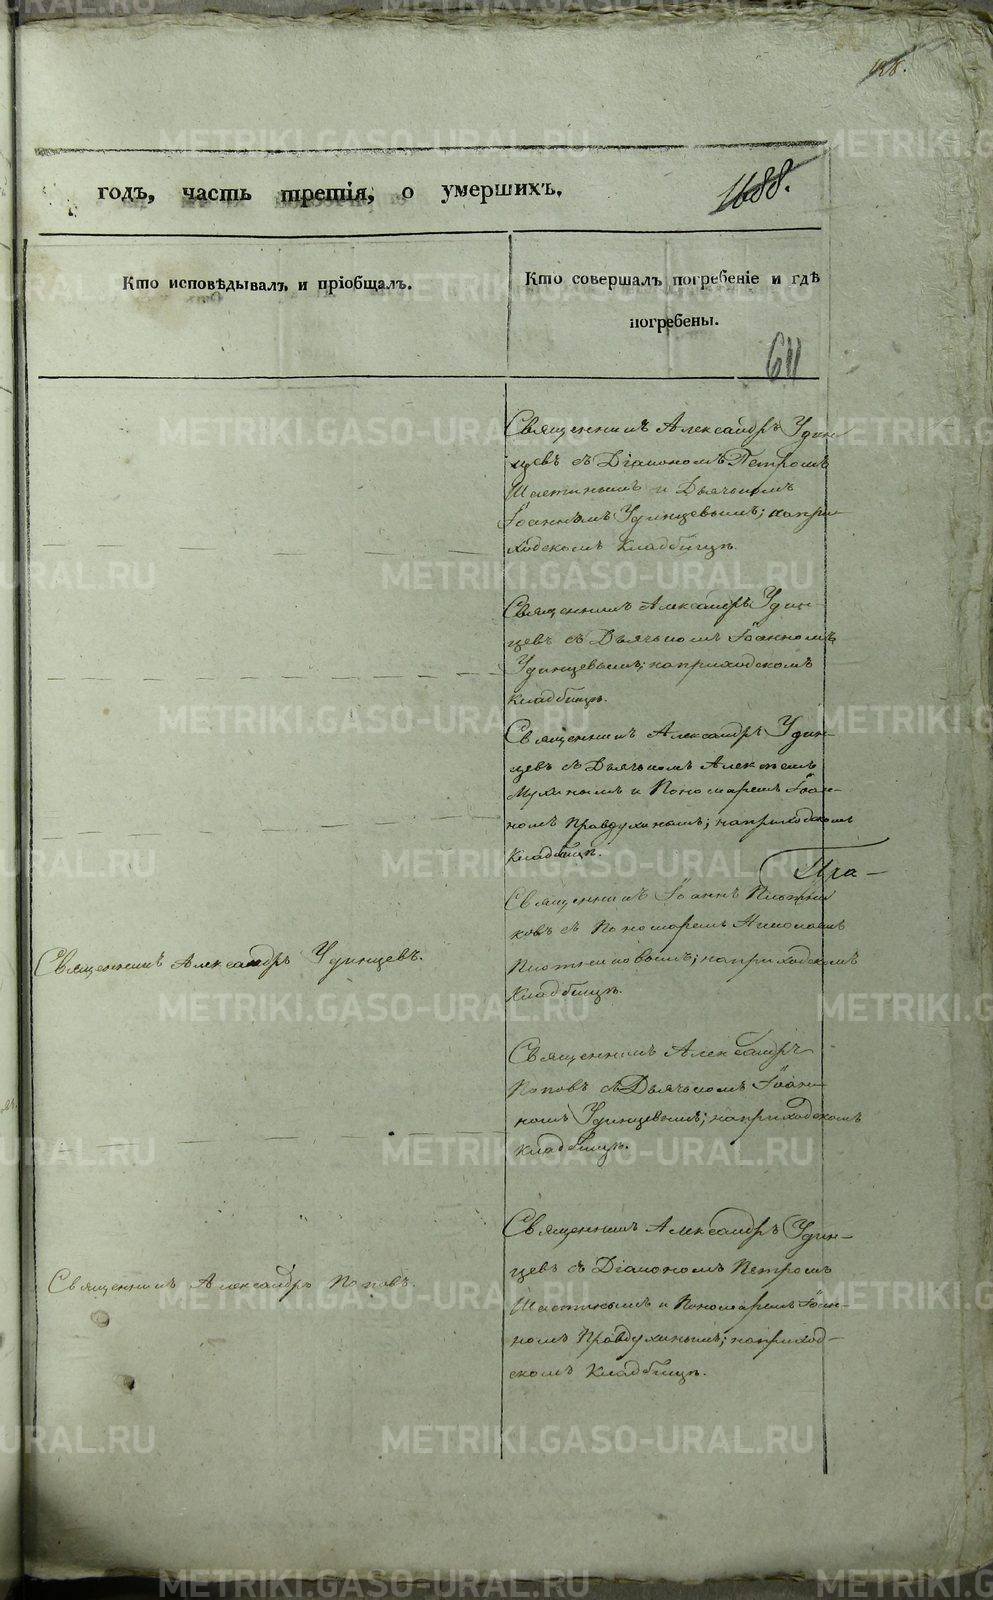 годъ, часть третія, о умершихъ.
1688.
Кто исповѣдывалъ и пріобщалъ.
Кто совершалъ погребеніе и гдѣ
погребены.
611
Священникъ Александръ Удин
цевъ съ Діакономъ Петромъ
и Дьячкомъ
Іоанномъ Удинцевымъ; на при
ходскомъ кладбищѣ.
Священникъ Александръ Удин-
цевъ съ Дьячкомъ Іоанномъ
Удинцевымъ; на приходскомъ
кладбищѣ.
Священникъ Александръ Удин-
цевъ съ Дьячкомъ Алексѣемъ
Мухинымъ и Пономаремъ Іоан-
номъ Правдухинымъ; на приходскомъ
кладбищѣ.
Священникъ Іоаннъ Плотни
ковъ съ Пономаремъ Николаемъ
Плотниковымъ; на приходскомъ
кладбищѣ.
Священникъ Александръ Удинцевъ.
Священникъ Александръ
Поповъ съ Дьячкомъ Іоан-
номъ Удинцевымъ; на приходскомъ
кладбищѣ.
Священникъ Александръ Удин-
цевъ съ Діакономъ Петромъ
и Пономаремъ Іоан-
номъ Правдухинымъ; на приход-
скомъ кладбищѣ.
Священникъ Александръ Поповъ.
METRIKI.GASO-URAL.RU